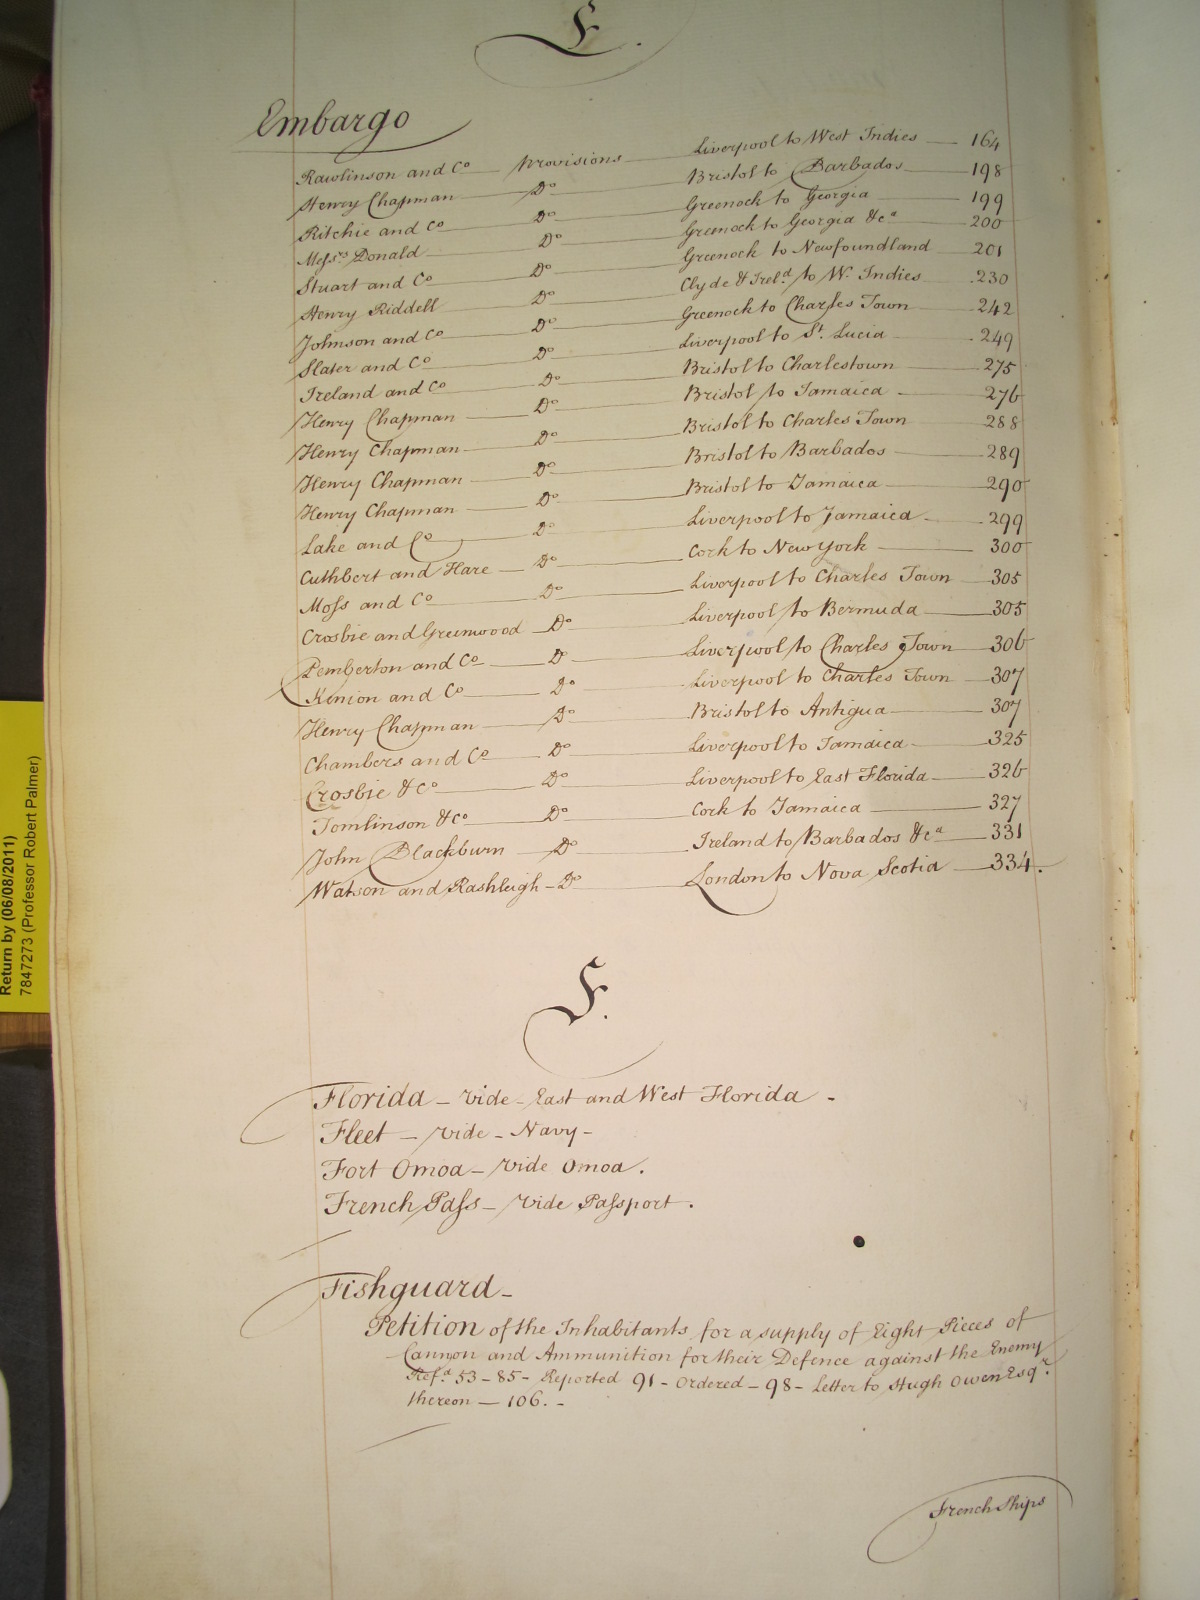 E.
Embargo
Rawlinson and Co Provisions Liverpool to West Indies 164
Henry Chapman Do Bristol to Barbados 198
Ritchie and Co Do Greenock to Georgia 199
Messrs Donald Do Greenock to Georgia &ca 200
Stuart and Co Do Greenock to Newfoundland 201
Henry Riddell Do Clyde & Ireld to W. Indies 230
Johnson and Co Do Greenock to Charles Town 242
Slater and Co Do Liverpool to St. Lucia 249
Ireland and Co Do Bristol to Charlestown 275
Henry Chapman Do Bristol to Jamaica 276
Henry Chapman Do Bristol to Charles Town 288
Henry Chapman Do Bristol to Barbados 289
Henry Chapman Do Bristol to Jamaica 290
Lake and Co Do Liverpool to Jamaica 299
Cuthbert and Hare Do Cork to New York 300
Moss and Co Do Liverpool to Charles Town 305
Crosbie and Greenwood Do Liverpool to Bermuda 305
Pemberton and Co Do Liverpool to Charles Town 306
Kinion and Co Do Liverpool to Charles Town 307
Henry Chapman Do Bristol to Antigua 307
Chambers and Co Do Liverpool to Jamaica 325
Crosbie & Co Do Liverpool to East Florida 326
Tomlinson & Co Do Cork to Jamaica 327
John Blackburn Do Ireland to Barbados &ca 331
Watson and Rashleigh - Do London to Nova Scotia 334.
F.
Florida - vide - East and West Florida -
Fleet - vide - Navy -
Fort Omoa - vide Omoa.
French Pass - vide Passport.
Fishguard -
Petition of the Inhabitants for a supply of Eight Pieces of
Cannon and Ammunition for their Defence against the Enemy
Refd 53 - 85 - Reported 91 - Ordered - 98 - Letter to Hugh Owen Esqr.
thereon - 106. -
French Ships
Return by (06/08/2011)
7847273 (Professor Robert Palmer)